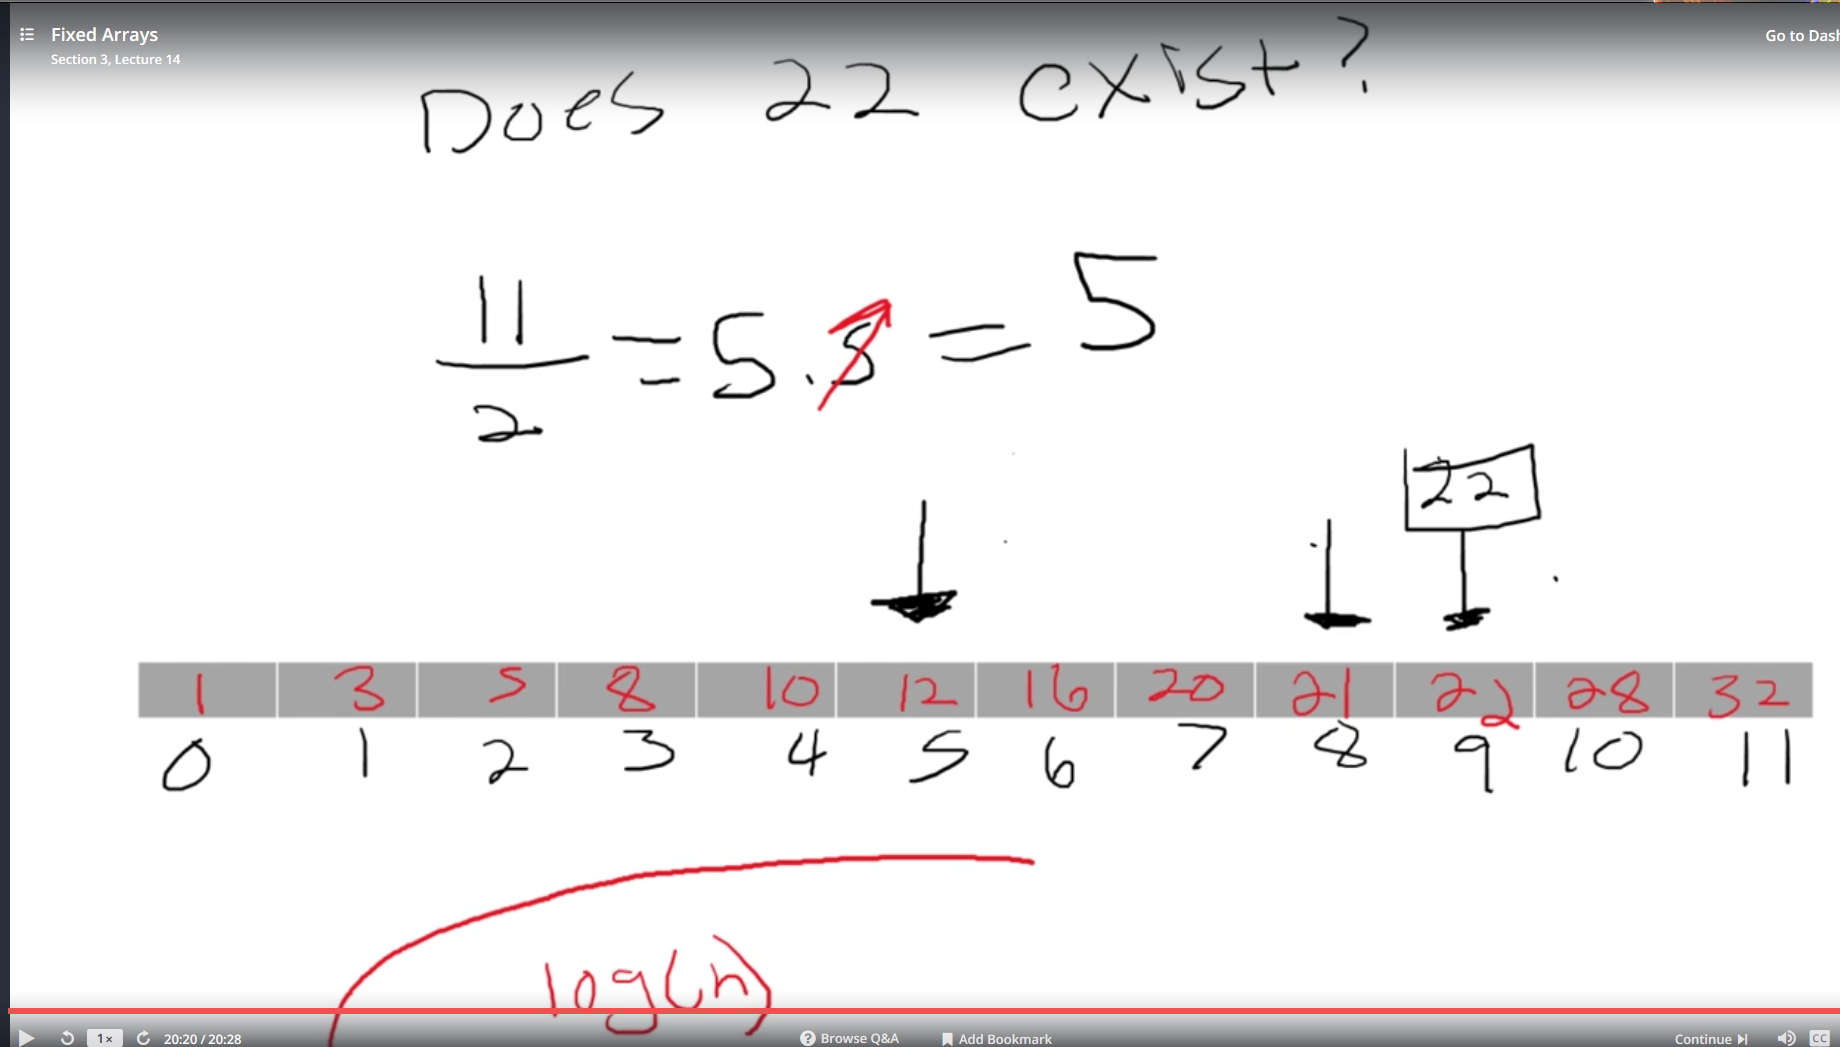 Fixed Arrays
Go to Dash
Section 3, Lecture 14
Does 22 exist?
11/2 = 5.5 = 5
22
1 3 5 8 10 12 16 20 21 22 28 32
0 1 2 3 4 5 6 7 8 9 10 11
log(n)
1x 20:20 / 20:28 ? Browse Q&A Add Bookmark Continue CC